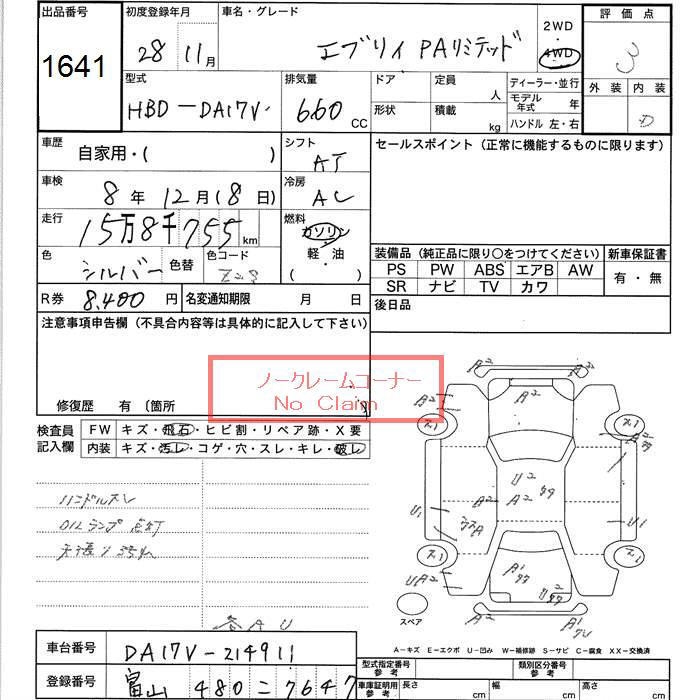 出品番号 初度登録年月 車名・グレード 2WD ・ 4WD 評価点
1641 28 11月 エブリイ PAリミテッド 3
型式 排気量 ドア 定員 人 ディーラー・並行 外装 内装
HBD-DA17V 660 CC 形状 積載 kg モデル年式 年 D
ハンドル 左・右
車歴 自家用・( ) シフト AT セールスポイント (正常に機能するものに限ります)
車検 8年12月(8日) 冷房 AC
走行 15万8千755km 燃料 ガソリン 軽・油 ( )
色 シルバー 色替 色コード Z2S
装備品 (純正品に限り○をつけてください) 新車保証書
PS PW ABS エアB AW 有・無
SR ナビ TV カワ
R券 8,400円 名変通知期限 月 日 後日品
注意事項申告欄 (不具合内容等は具体的に記入して下さい)
ノークレームコーナー
No Claim
修復歴 有 〔箇所
検査員記入欄 FW キズ・飛石・ヒビ割・リペア跡・X要
内装 キズ・汚レ・コゲ・穴・スレ・キレ・破レ
ハンドルスレ
OILランプ点灯
天張り汚れ
各AU
A2 A2
A2
U2
A2 A2
U1 U1
UA2
A1
スペア
A-キズ E-エクボ U-凹み W-補修跡 S-サビ C-腐食 XX-交換済
車台番号 DA17V-214911 型式指定番号 参考 類別区分番号 参考
登録番号 富山 480 = 7647 車庫証明用 参考 長さ cm 幅 cm 高さ cm